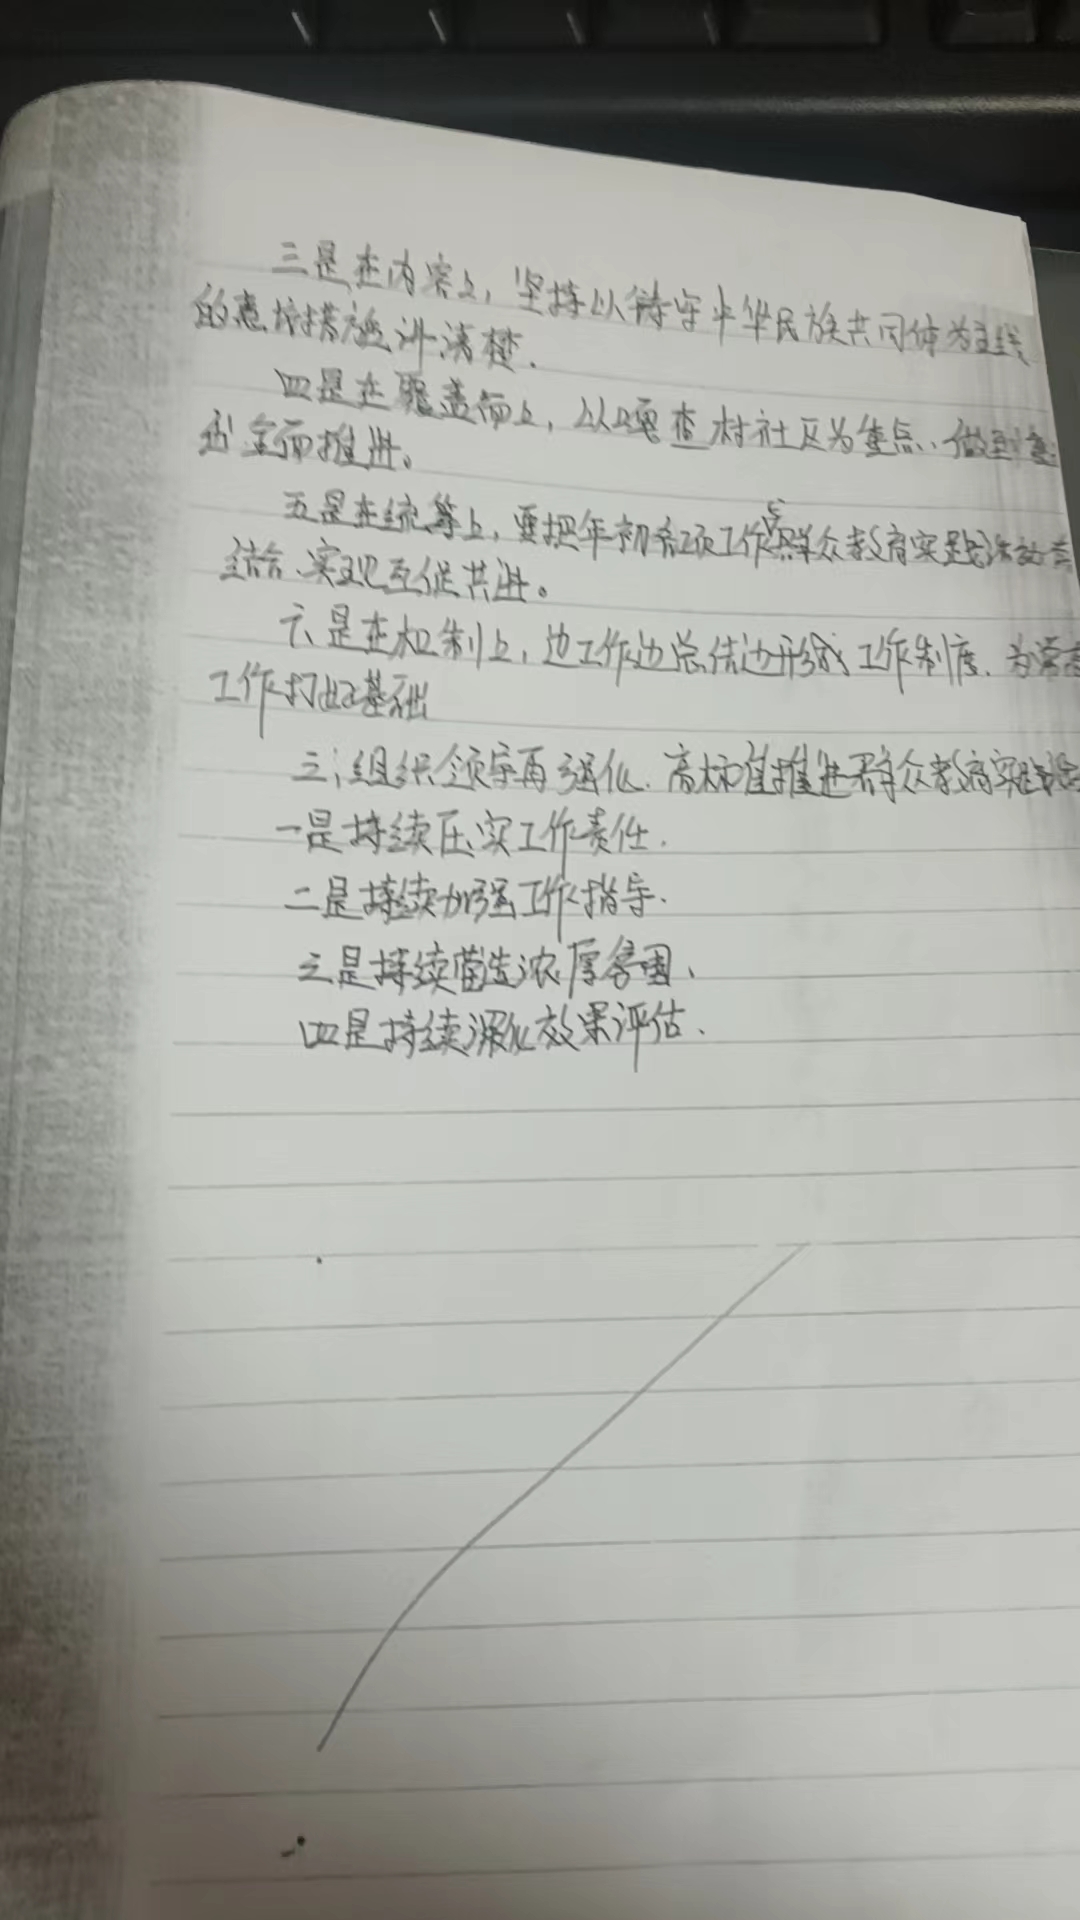 三是在内容上，坚持以铸牢中华民族共同体为主线
的惠 措施讲清楚.
四是在覆盖面上，以嘎查村社区为重点、做到
全面推进。
五是在统筹上，要把年初各项工作与群众教育实践活动
结合、实现互促共进。
六是在机制上，边工作边总结边形成工作制度.为常态
工作打好基础
三、组织领导再强化.高标准推进群众教育实践
一是持续压实工作责任.
二是持续加强工作指导.
三是持续营造浓厚氛围、
四是持续深化效果评估.